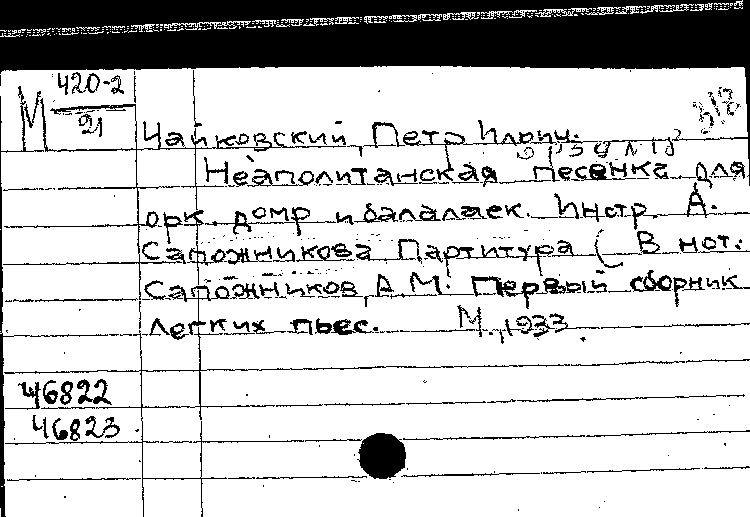 М 420-2
21
Чайковский, Петр Ильич.
Неаполитанская песенка для
орк. домр и балалаек. Инстр. А.
Сапожникова Партитура ( В нот.
Сапожников, А.М. Первый сборник
легких пьес. М., 1933.
46822
46823